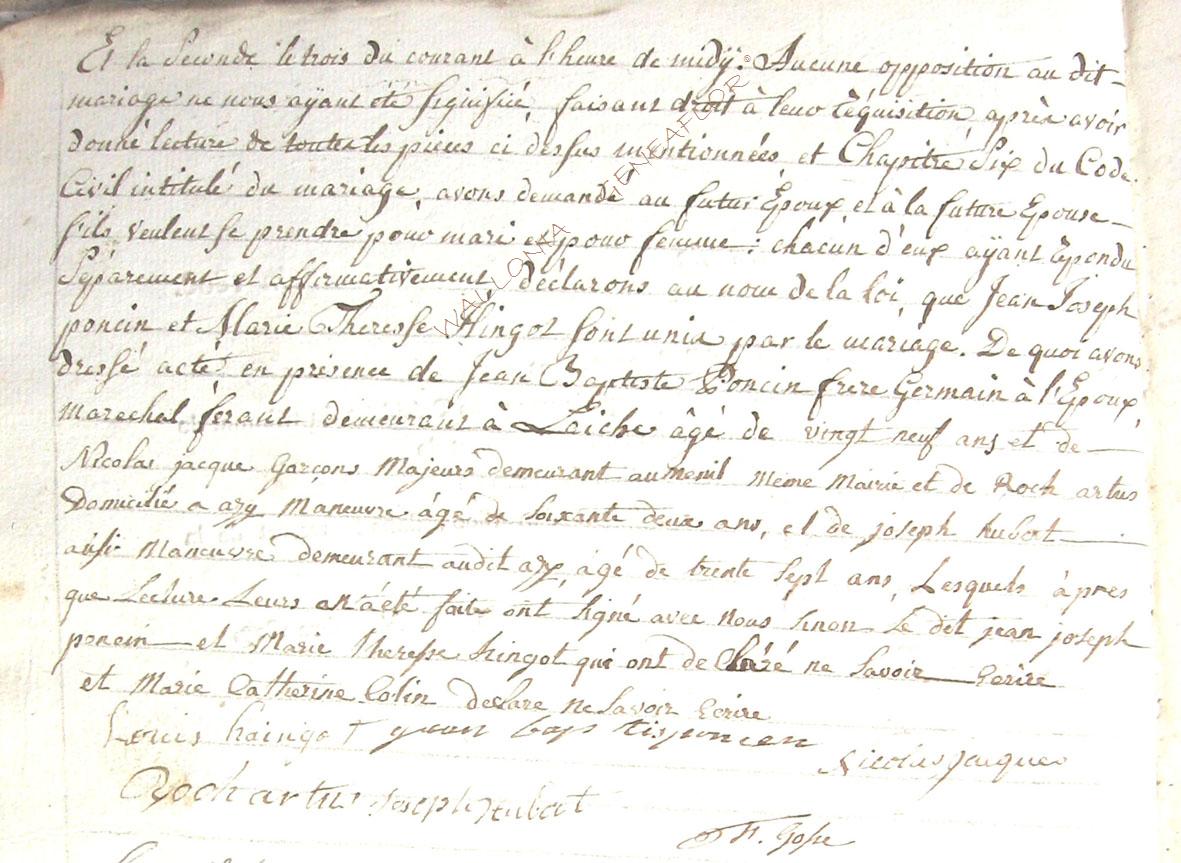 Et la Seconde le trois du courant à l'heure de midÿ. Aucune opposition au dit
mariage ne nous aÿant été signifiée, faisant droit à leur réquisition, après avoir
donné lecture de toutes les pieces ci dessus mentionnées et Chapitre Six du Code
Civil intitulé du mariage, avons demandé au futur Epoux et à la future Epouse
s'ils veulent se prendre pour mari et pour femme : chacun d'eux aÿant répondu
Séparement et affirmativement, déclarons au nom de la loi, que Jean Joseph
poncin et Marie Theresse Hingot sont unis par le mariage. De quoi avons
dressé acte en présence de Jean Baptiste Poncin frere Germain à l'Epoux,
marechal ferant demeurant à Laiche âgé de vingt neuf ans et de
Nicolas jacque Garçons Majeurs demeurant au menil meme Mairie et de Roch artus
Domicilié a azy Maneuvre âgé de Soixante deux ans, et de joseph hubert
ausi Maneuvre demeurant audit azy, agé de trente Sept ans, Lesquels àpres
que Lecture Leurs an àété faite ont Signé avec nous Sinon Le dit jean joseph
poncin et Marie Theresse hingot qui ont de Claré ne Savoir Ecrire
et Marie Catherine Colin declare ne Savoir Ecrire
Louis haingot jean bap tis poncen
Nicolas Jacques
Roch artus Joseph Hubert
H. Gosse
WALLONIA © GENEAFOR